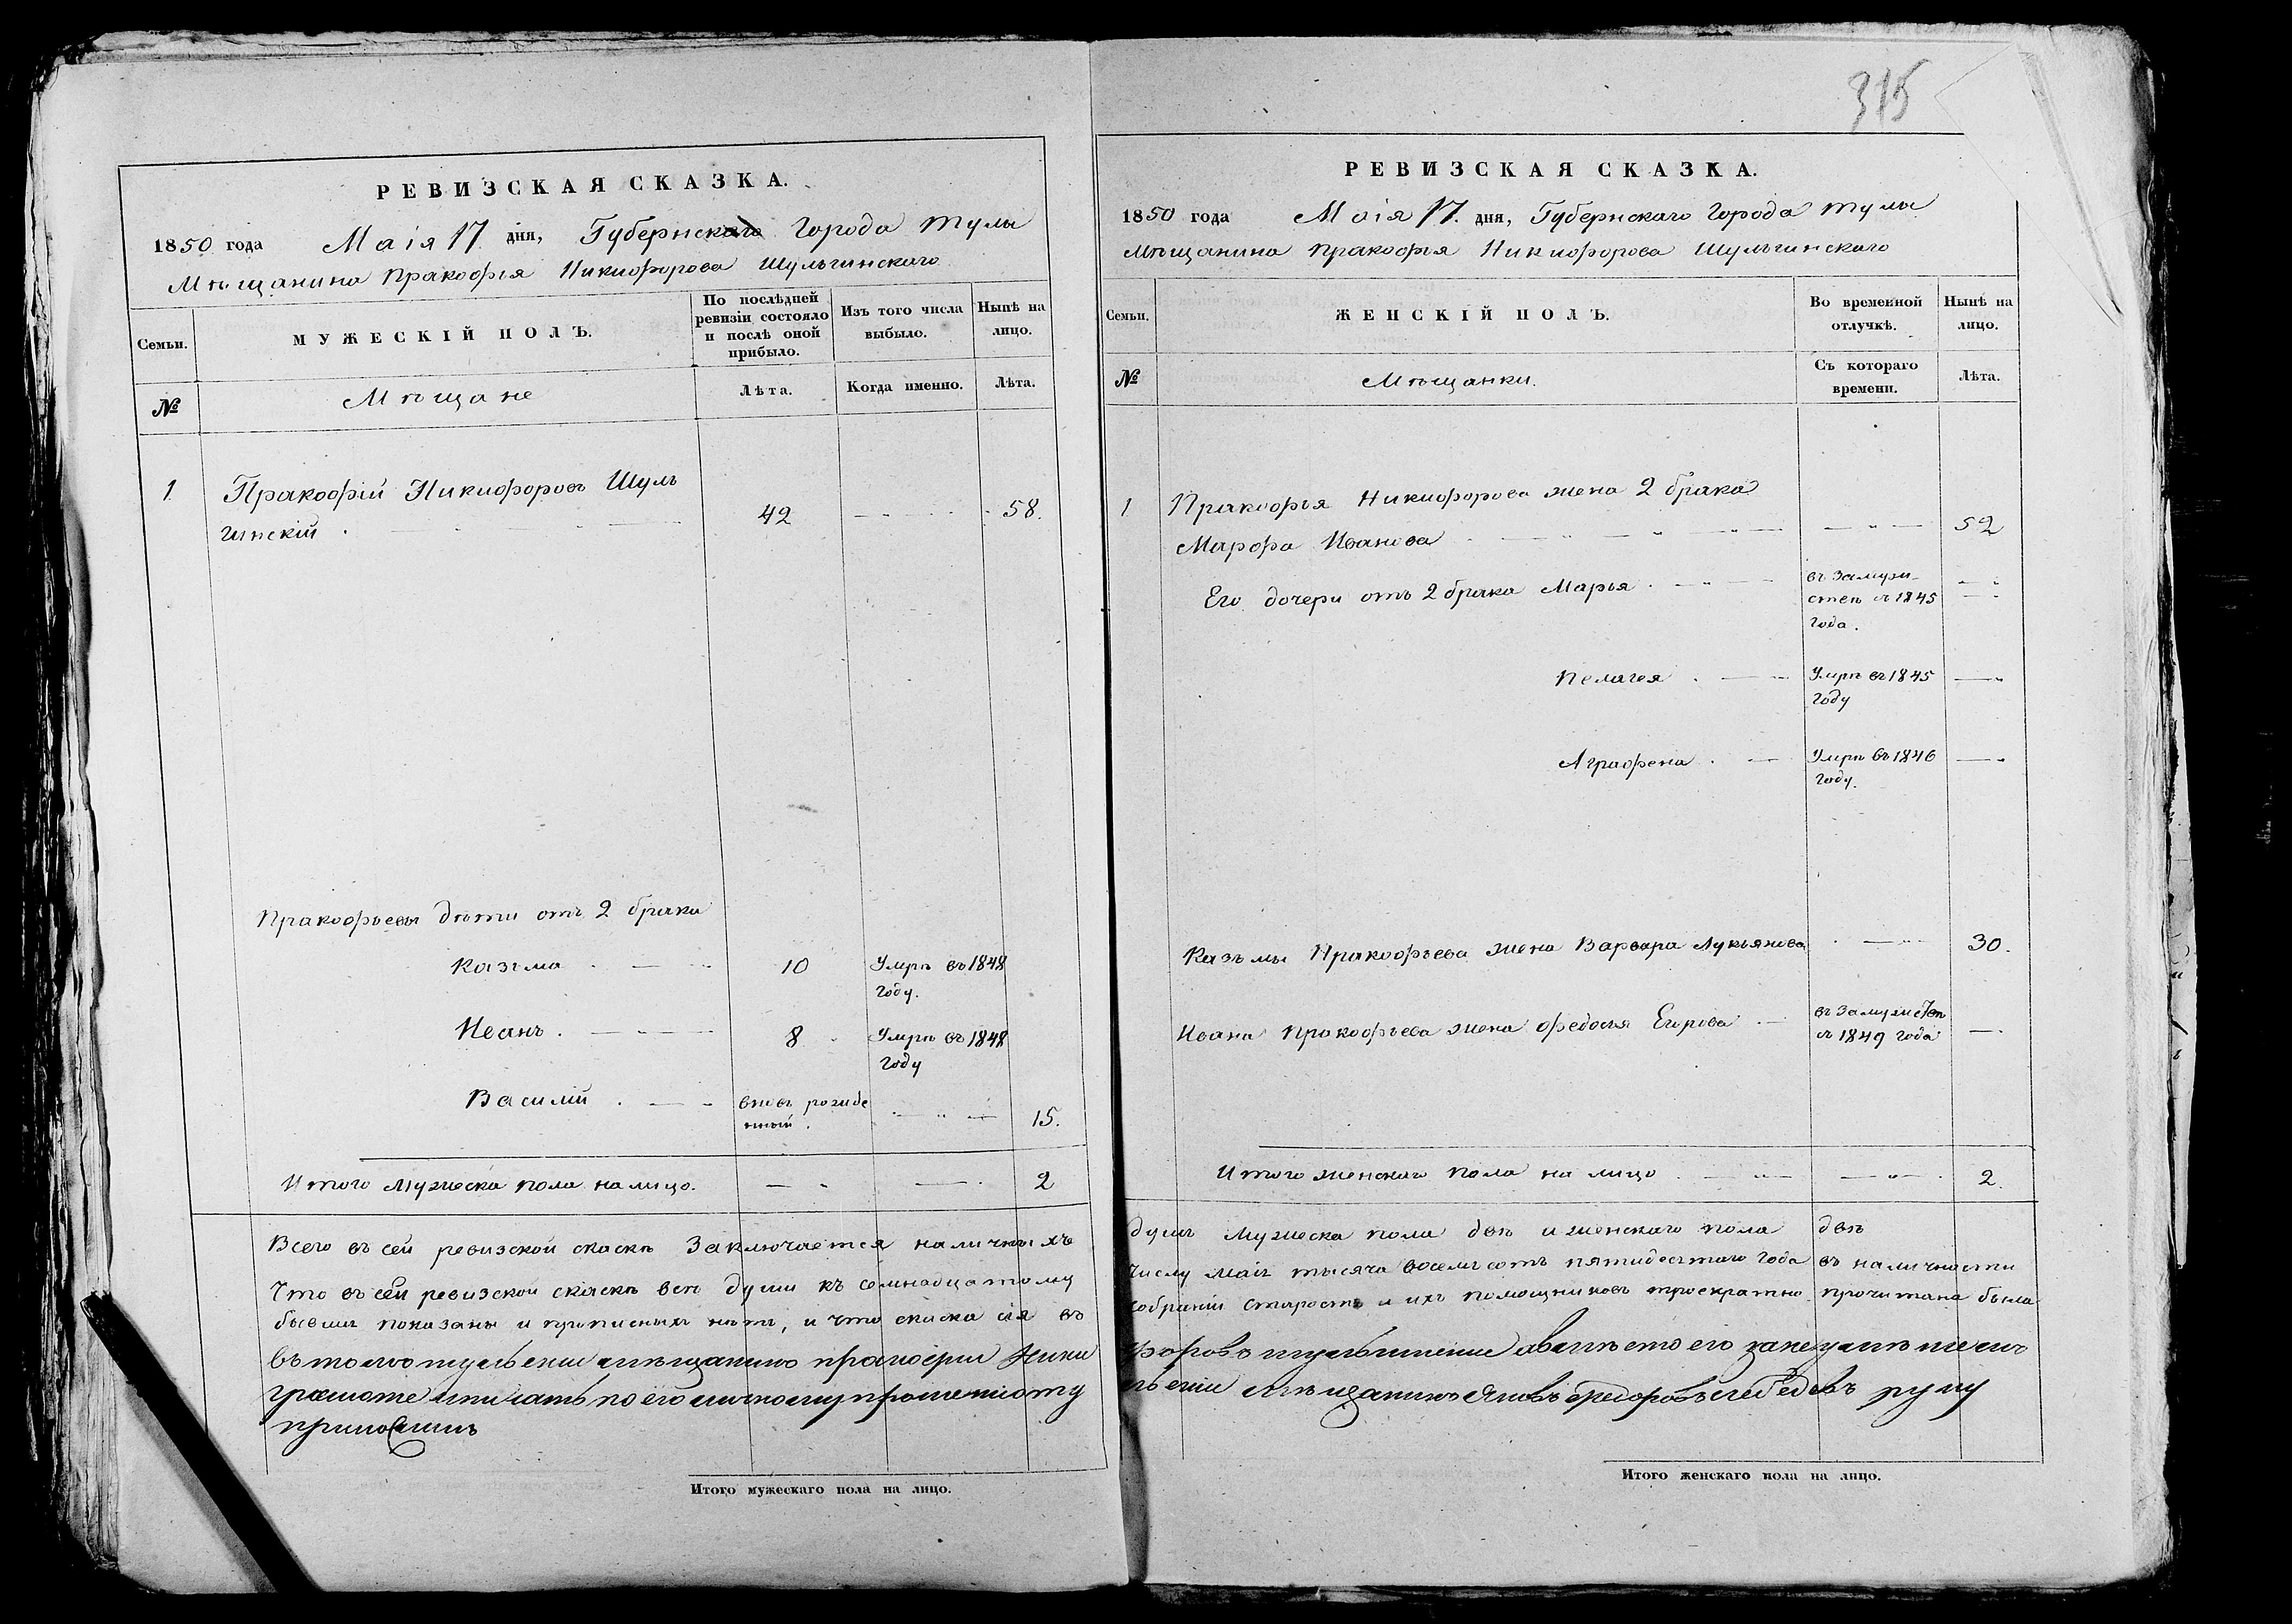 315
РЕВИЗСКАЯ СКАЗКА.
1850 года Маія 17 дня, Губернскаго Города Тулы
Мѣщанина Пракофья Никифорова Шульгинскаго
Семьи. МУЖЕСКІЙ ПОЛЪ. По послѣдней ревизіи состояло и послѣ оной прибыло. Изъ того числа выбыло. Нынѣ на лицо.
№ Мѣщане Лѣта. Когда именно. Лѣта.
1. Пракофій Никифоровъ Шуль
гинскій 42 58.
Пракофьевы дѣти отъ 2 брака
Казьма 10 Умръ въ 1848
году.
Иванъ 8 Умръ въ 1848
году
Василій вновь рожде
нный 15.
Итого мужеска пола на лицо. 2
Всего въ сей ревизской скаскѣ Заключается наличныхъ
Что въ сей ревизской скаскѣ всѣ души къ семнадцатому
бывши показаны и прописныхъ нѣтъ, и что скаска сія въ
грамоте
Итого мужескаго пола на лицо.
РЕВИЗСКАЯ СКАЗКА.
1850 года Маія 17. дня, Губернскаго Города Тулы
Мѣщанина Пракофья Никифорова Шульгинскаго
Семьи. ЖЕНСКІЙ ПОЛЪ. Во временной отлучкѣ. Нынѣ на лицо.
№ Мѣщанки. Съ котораго времени. Лѣта.
1 Пракофья Никифорова жена 2 брака
Марфа Иванова 52
Его дочери отъ 2 брака Марья въ Замуж-
ствѣ съ 1845
года.
Пелагея Умръ въ 1845
году
Аграфена Умръ въ 1846
году.
Казьмы Пракофьева жена Варвара Лукьянова 30.
Ивана Пракофьева жена Федосья Егорова въ Замужствѣ
съ 1849 года
Итого женскаго пола на лицо 2.
душъ мужеска пола двѣ и женскаго пола двѣ
числу Маія тысяча восемьсотъ пятидесятаго года въ наличности
собраніи старостъ и ихъ помощниковъ троекратно прочитана была
мѣщанинъ Яковъ Федоровъ Лебедевъ руку
Итого женскаго пола на лицо.